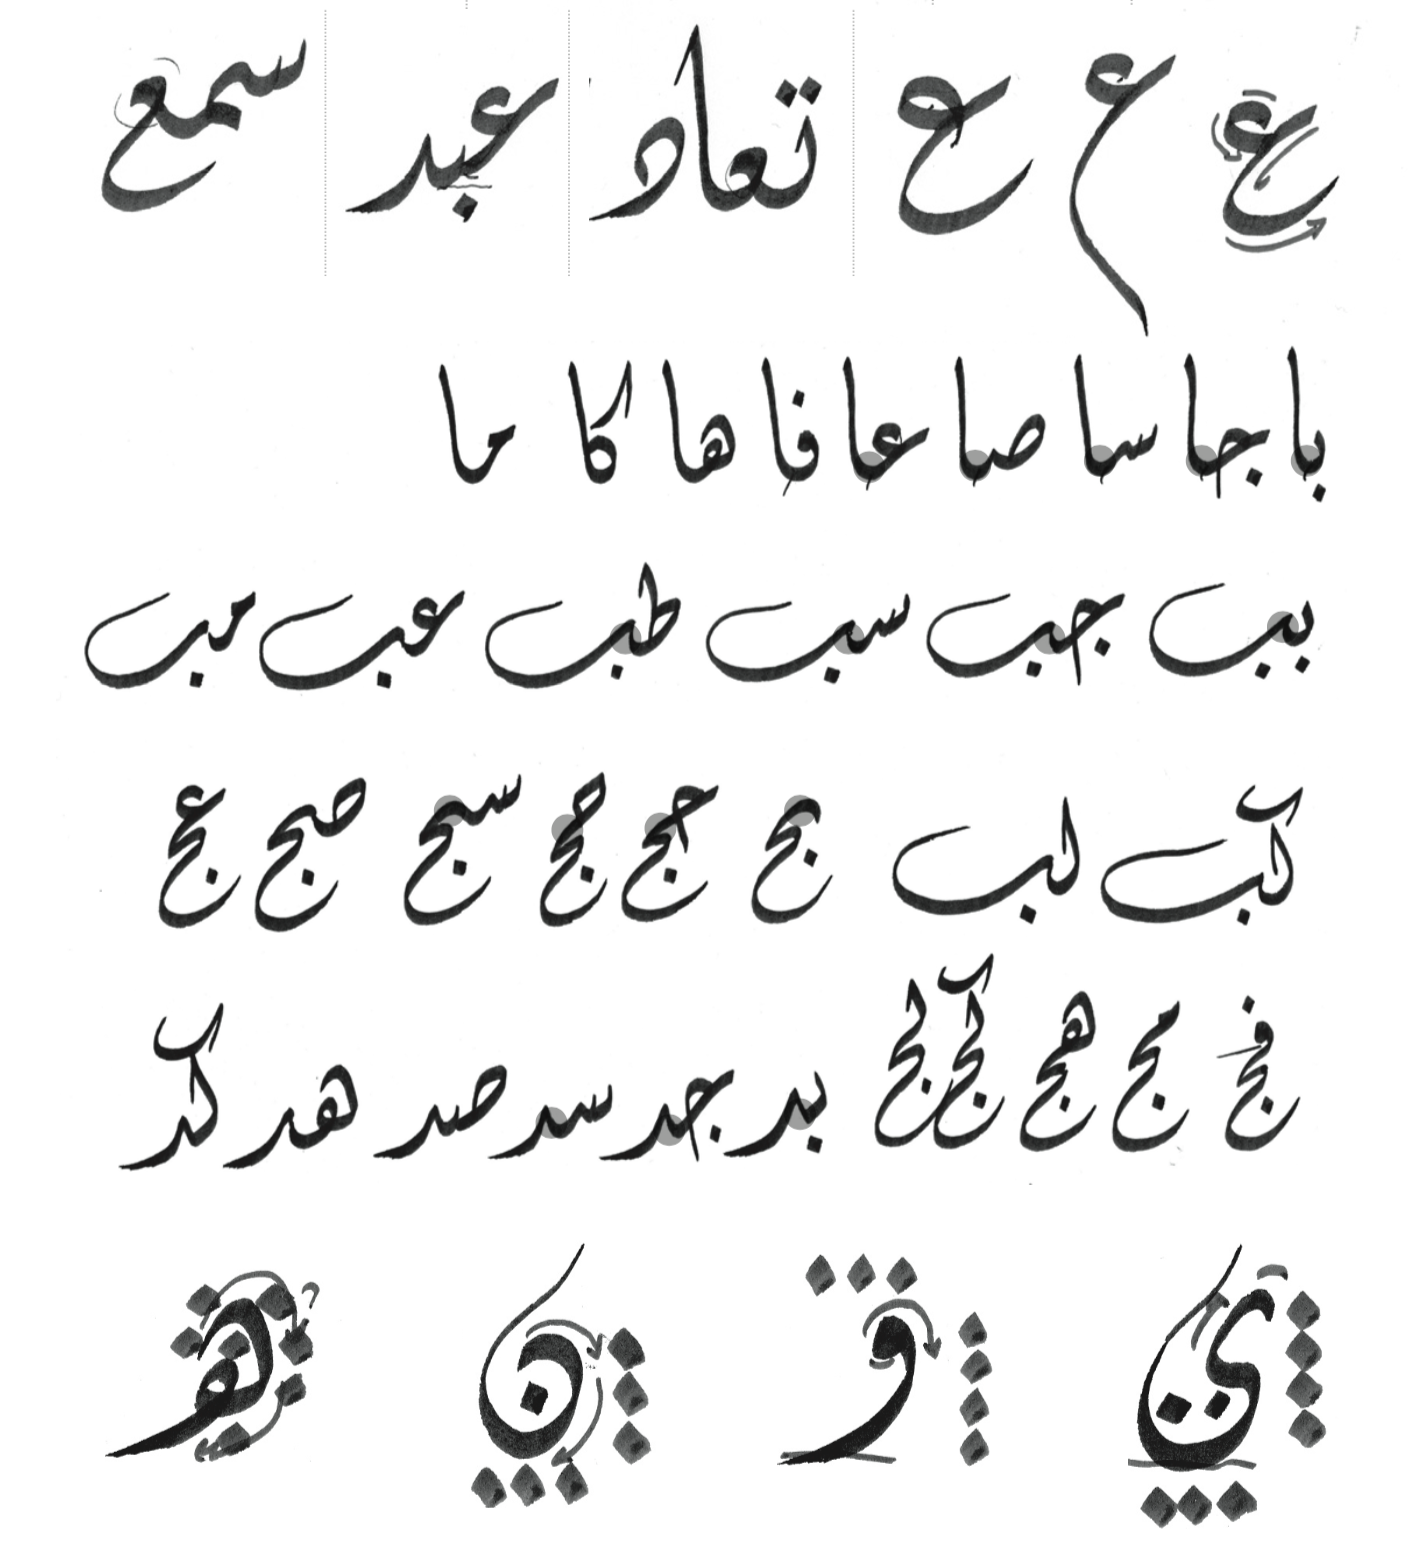 ع ع ع تعاد عبد سمع
با جا سا صا عا فا ها كا ما
ببب جب سب طب عب مب
كب لب بج حج حج سبج صج عج
فج مج هج كج لج بد جد سد صد هد كد
ي و ن هو